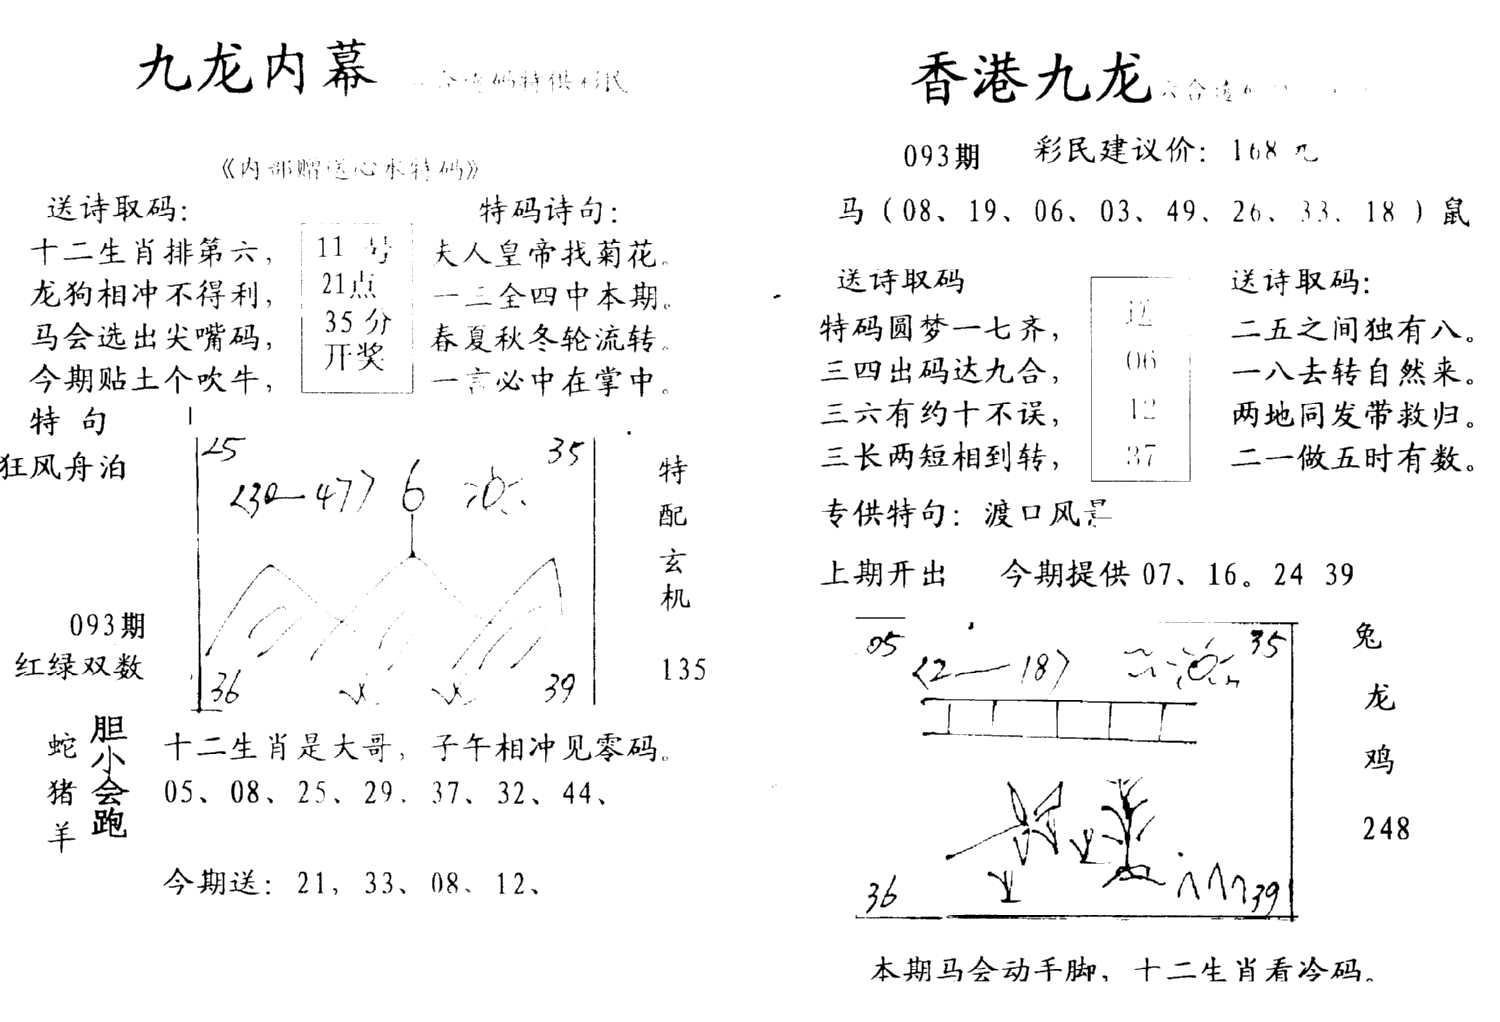 九龙内幕
合 码特供彩民
《内部赠送心水特码》
送诗取码：
特码诗句：
十二生肖排第六，
龙狗相冲不得利，
马会选出尖嘴码，
今期贴土个吹牛，
11 号
21点
35 分
开奖
夫人皇帝找菊花。
一三全四中本期。
春夏秋冬轮流转。
一言必中在掌中。
特 句
狂风舟泊
25
35
<30—47>
6
36
39
特
配
玄
机
135
093期
红绿双数
蛇
猪
羊
胆
小
会
跑
十二生肖是大哥，子午相冲见零码。
05、08、25、29、37、32、44、
今期送：21，33、08、12、
香港九龙
六合
093期 彩民建议价：168 元
马（08、19、06、03、49、26、33、18）鼠
送诗取码
特码圆梦一七齐，
三四出码达九合，
三六有约十不误，
三长两短相到转，
送
06
12
37
送诗取码：
二五之间独有八。
一八去转自然来。
两地同发带救归。
二一做五时有数。
专供特句：渡口风景
上期开出 今期提供 07、16。24 39
05
35
<2—18>
36
39
兔
龙
鸡
248
本期马会动手脚，十二生肖看冷码。